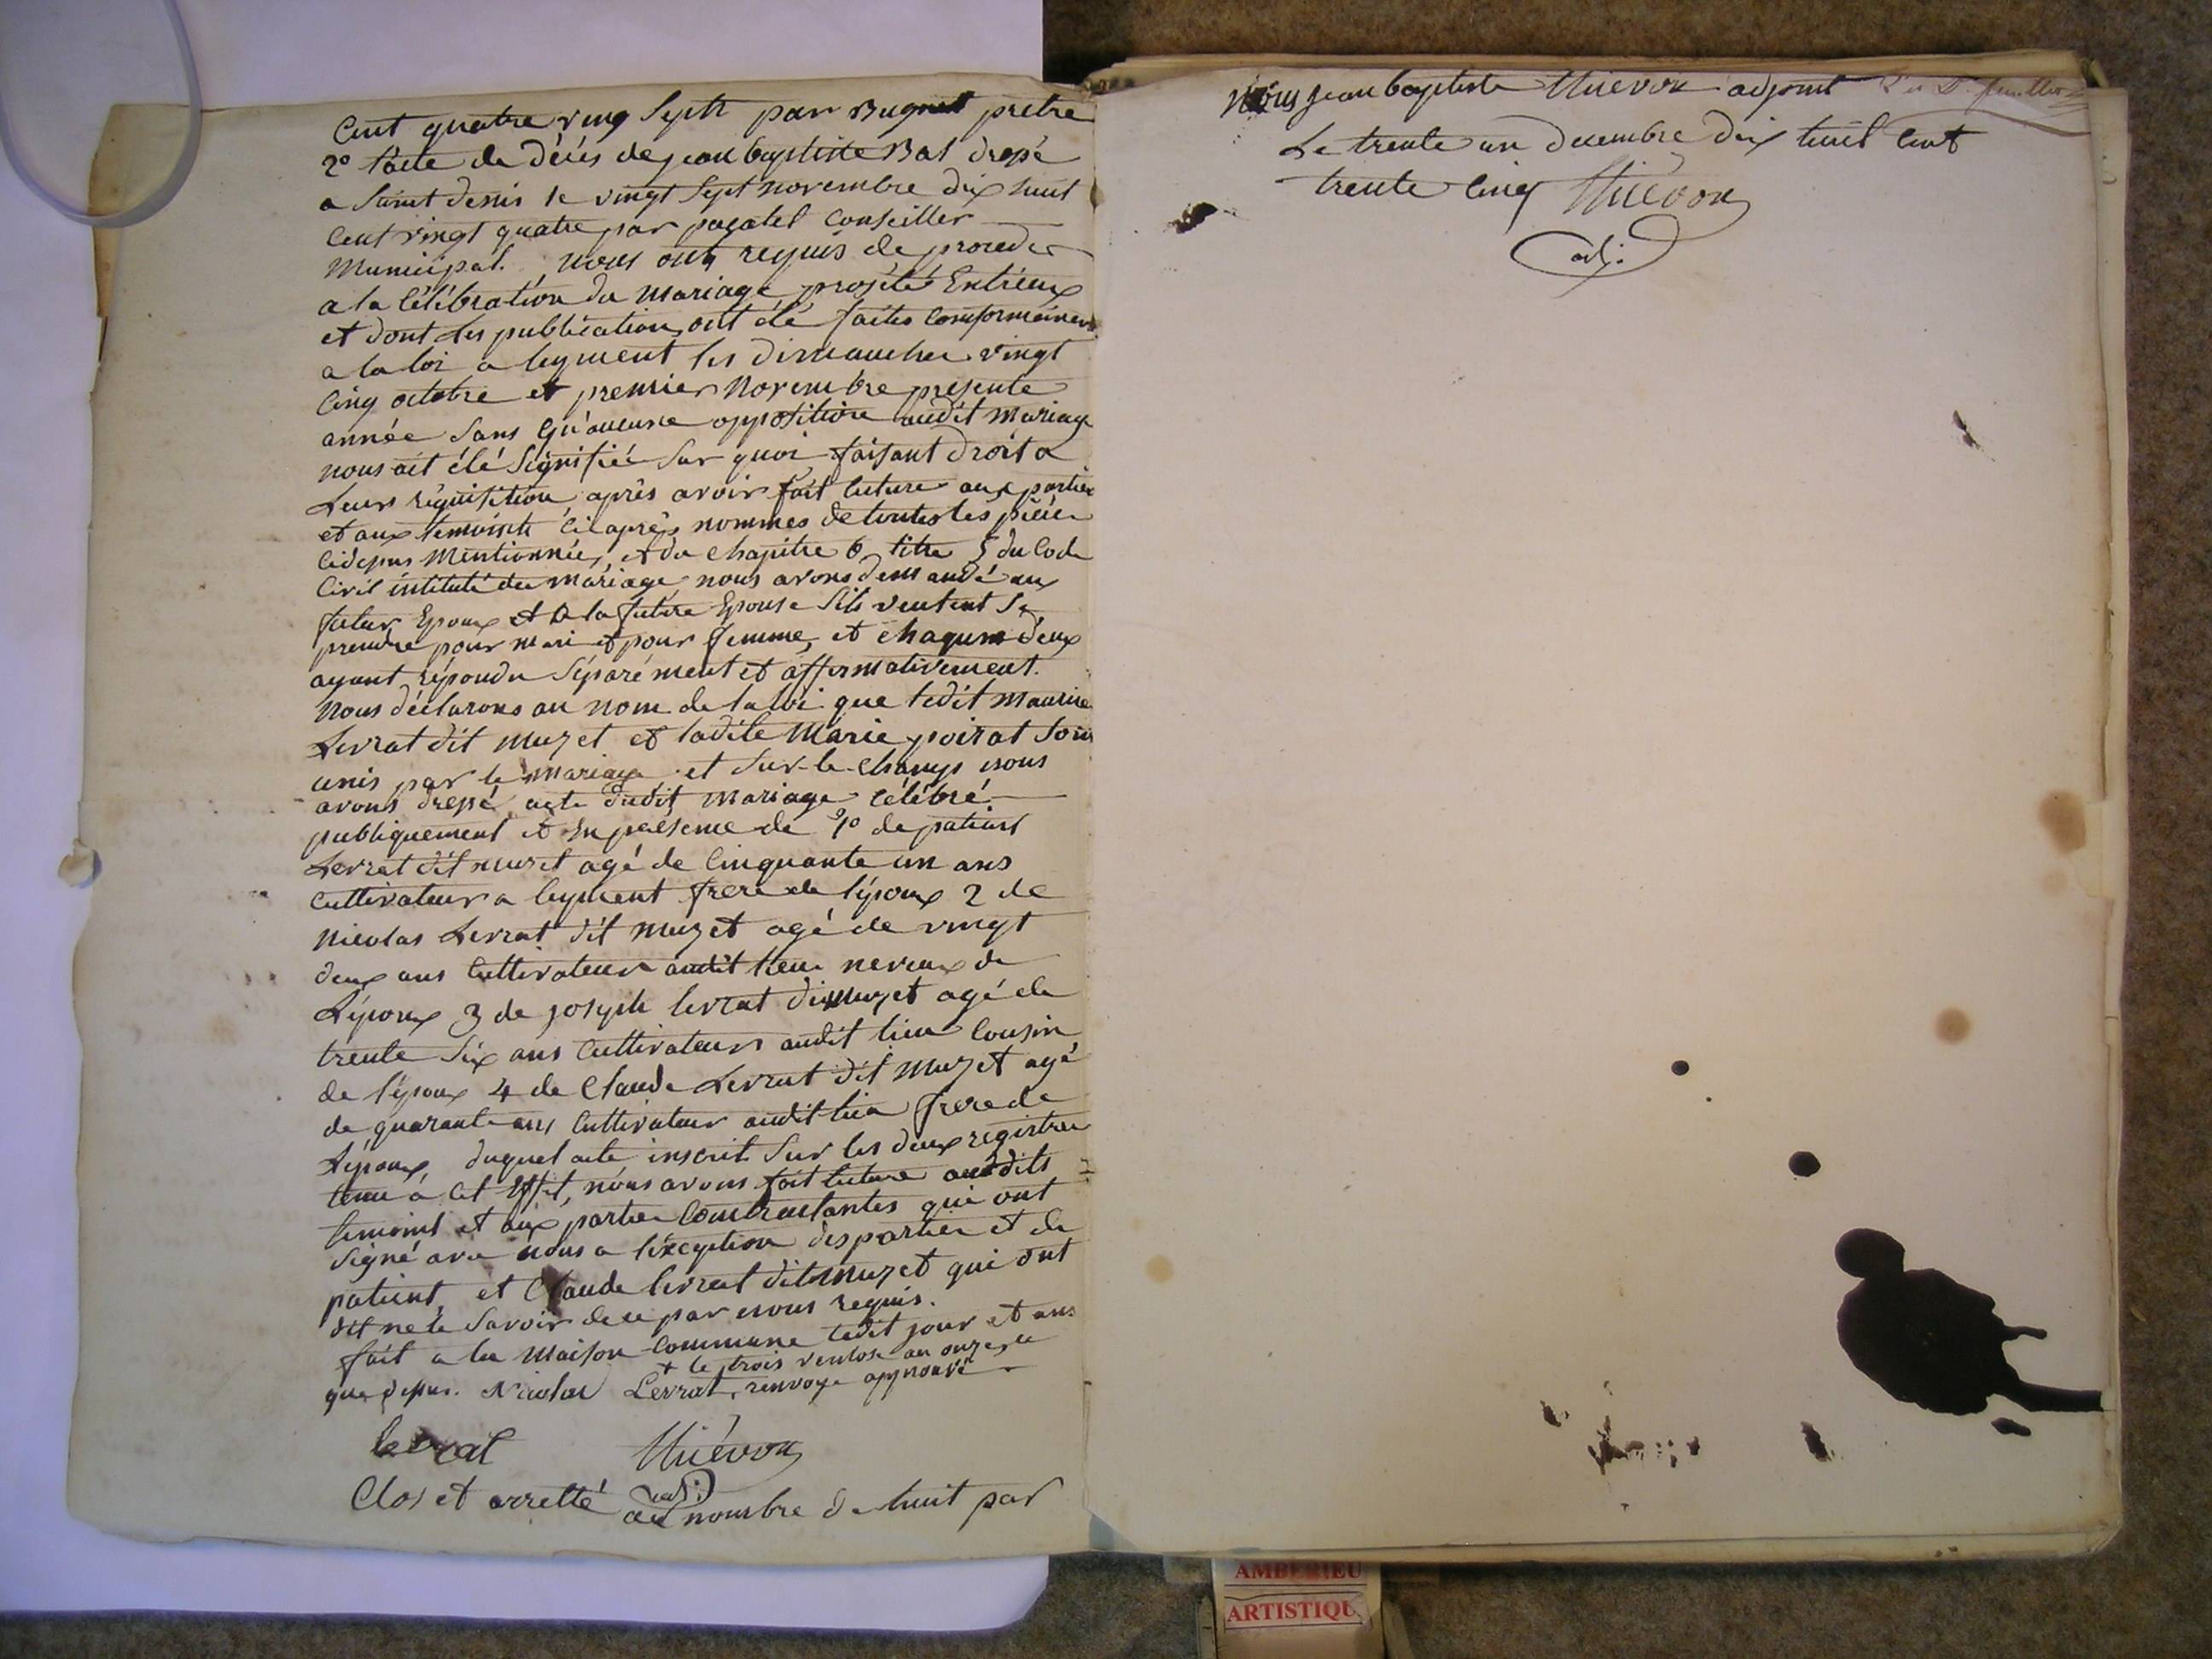 Cent quatre ving Sept par Bugnet prêtre
2° l'acte de décés de jean baptiste Bas drepé
a Saint denis le vingt Sept novembre dix huit
Cent vingt quatre par pagatel Conseiller
Municipal. nous ont requis de proceder
a la Célébration du Mariage projeté Entreux
et dont les publication ont été faites Conformément
a la loi a leyment les dimanches vingt
Cinq octobre et premier Novembre presente
année Sans qu'aucune opposition audit Mariage
nous ait été Signifiée Sur quoi faisant droit a
Leurs réquisition, après avoir fait lecture aux parties
et aux temoints Ci après nommes de toutes les pièces
Cidepus Mentionnées, et du Chapitre 6 titre 5 du Code
Civil intitulé du Mariage nous avons demandé au
futur Epoux et a la future Epouse S'ils veulent Se
prendre pour mari et pour femme, et chaqum d'eux
ayant répondu Séparément et affirmativement.
Nous déclarons au nom de la loi que ledit Maurice
Levrat dit Muzet et ladite Marie poirat Sont
unis par le mariage et Sur-le-Champs nous
avons drepé acte dudit Mariage Célébré
publiquement et En présence de 1° de patient
Levrat dit muzet agé de Cinquante un ans
Cultivateur a leyment frere de l'époux 2 de
Nicolas Levrat dit muzet agé de vingt
deux ans Cultivateur audit lieu neveux de
L'époux 3 de joseph levrat dit Muzet agé de
trente Six ans Cultivateurs audit lieu Cousin
de l'époux 4 de Claude Levrat dit Muzet agé
de quarante ans Cultivateur audit lieu frere de
L'époux, duquel acte inscrit Sur les deux registres
tenu à Cet Effet, nous avons fait lecture audits
temoins et aux parties Contractantes qui ont
Signé avec nous a l'exception des parties et de
patient, et Claude levrat dit Muzet qui ont
dit ne le Savoir de ce par nous requis.
fait a la Maison Commune ledit jour et ans
+ le trois ventose an onze
que depus. Nicolas Levrat, renvoye approuvé
levrat Thiévon
adj.
Clos et arretté au nombre de huit par
Nous jean baptiste Thievon adjoint
Le trente un decembre dix huit Cent
trente Cinq Thiévon
adj.
AMBERIEU
ARTISTIQU